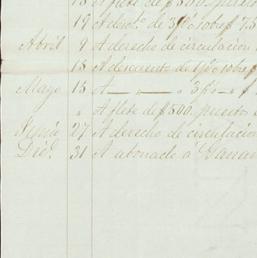 18 A flete de $800. puestos
19 A dsto. de 3% sobre $ 7.5
Abril 9 A derecho de circulacion
18 A descuento de 1% sobre
Mayo 18 A — „ — „ 3% „ — „
„ A flete de $500. puestos
Junio 27 A derecho de circulacion
Dice. 31 A abonado á Ganan